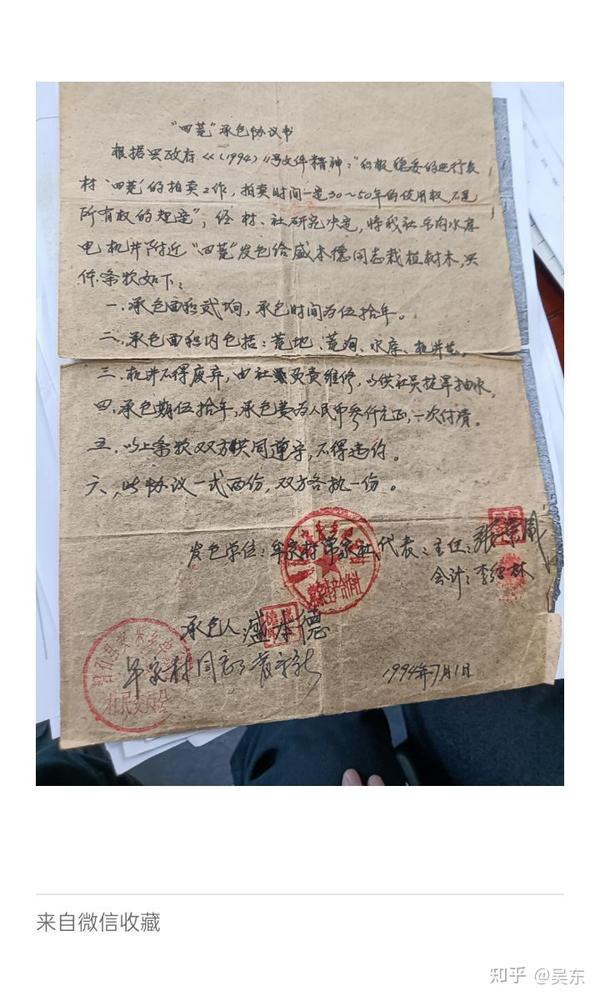 "四荒"承包协议书
根据县政府《(1994)11号文件精神："积极稳妥的进行农
村"四荒"的拍卖工作，拍卖时间一定30～50年的使用权，不是
所有权的规定"，经村、社研究决定，将我社 水库
电机井附近"四荒"发包给盛本德同志栽植树木，具
体条款如下：
一、承包面积贰垧，承包时间为伍拾年。
二、承包面积内包括：荒地、荒沟、水库、机井等。
三、机井不得废弃，由社里负责维修，以供社员抗旱抽水。
四、承包期伍拾年，承包费为人民币叁仟元正，一次付清。
五、以上条款双方共同遵守，不得违约。
六、此协议一式两份，双方各执一份。
发包单位：牟家村 社代表：主任：张
会计：李 林
承包人 盛本德
牟家村同意
村民委员会
1994年7月1日
来自微信收藏
知乎 @吴东